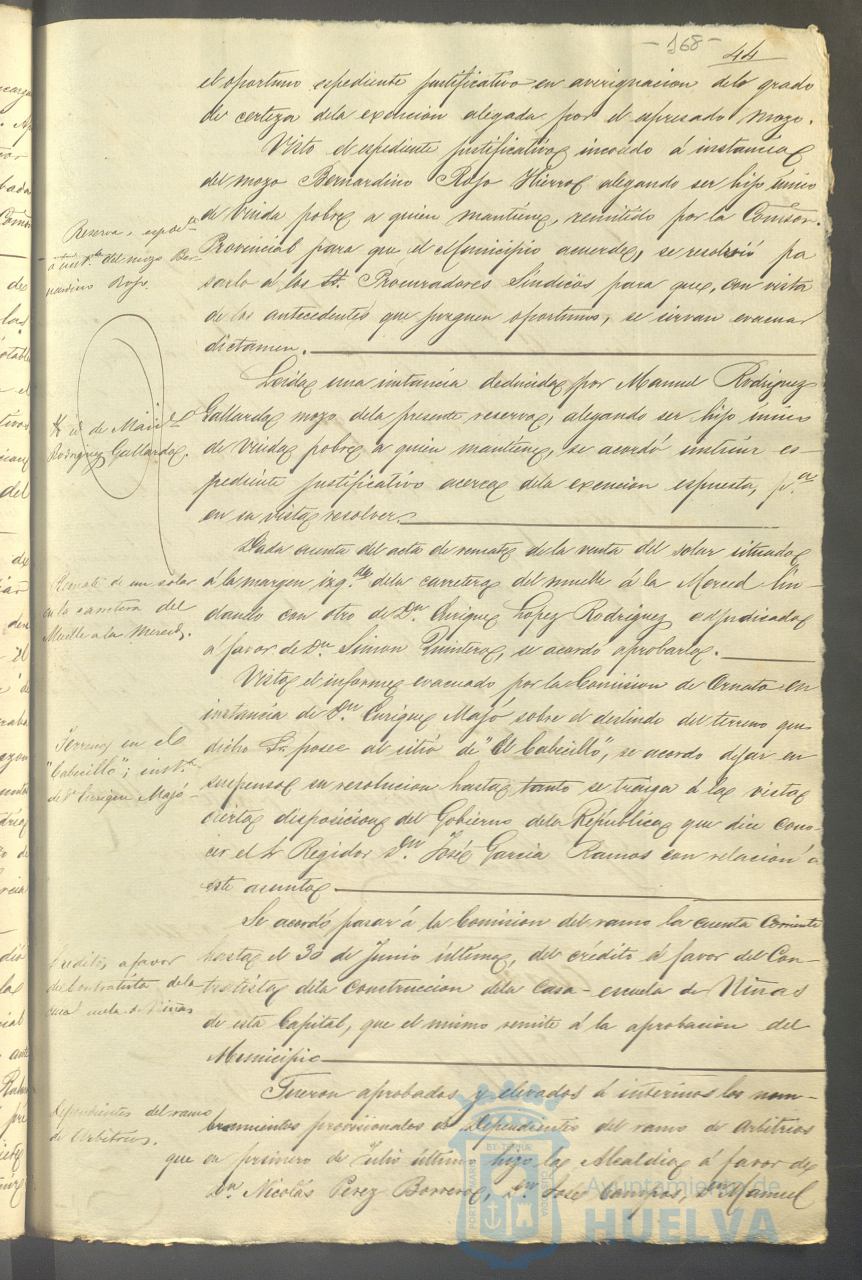 -168-
44
el oportuno espediente justificativo en averignacion delo grado
de certeza dela exencion alegada por el espresado mozo.
Visto el espediente justificativo incoado á instancia
del mozo Bernardino Rojo Hierro alegando ser hijo único
de Viuda pobre a quien mantiene, remitido por la Comson.
Provincial para que el Municipio acuerde, se resolvió pa
sarlo á los Sres. Procuradores Síndicos para que, con vista
de los antecedentes que juzguen oportunos, se sirvan evacuar
dictamen.
Reserva, esp.de
á inst.a del mozo Ber-
nardino Rojo.
Leida una instancia deducida por Manuel Rodriguez
Gallardo mozo dela presente reserva, alegando ser hijo único
de Viuda pobre a quien mantiene, se acordó instruir es-
pediente justificativo acerca dela exencion espuesta, p.a
en su vista resolver.
id de Man.l
Rodriguez Gallardo.
Dada cuenta del acta de remate de la venta del solar situado
á la margen izq.da dela carretera del muelle á la Merced lin-
dando con otro de Dn. Enrique Lopez Rodriguez adjudicado
á favor de Dn. Simon Quintero, se acordó aprobarla.
Remate de un solar
en la carretera del
Muelle a la Merced.
Visto el informe evacuado por la Comision de Ornato en
instancia de Dn. Enrique Majó sobre el deslinde del terreno que
dicho Sr. posee al sitio de "El Cabecillo", se acordo dejar en
suspenso su resolucion hasta tanto se traiga á la vista
cierta disposicion del Gobierno dela República que dice cono-
cer el Sr Regidor Dn. José Garcia Ramos con relacion á
este asunto
Terreno en el
"Cabecillo"; inst.a
de Dn Enrique Majó-
Se acordó pasar á la Comision del ramo la cuenta corriente
hasta el 30 de Junio último, del crédito á favor del Con-
tratista dela construccion dela Casa-escuela de Niñas
de esta Capital, que el mismo remite á la aprobacion del
Municipio
Credito a favor
del contratista dela
escuela de Niñas
Fueron aprobados y elevados á interinos los nom-
bramientos provisionales de dependientes del ramo de Arbitrios
que en primero de Julio último hizo la Alcaldia á favor de
Dn. Nicolás Perez Borrero, Dn. José Campos, Dn Manuel
Dependientes del ramo
de Arbitrios.
Ayuntamiento de
HUELVA